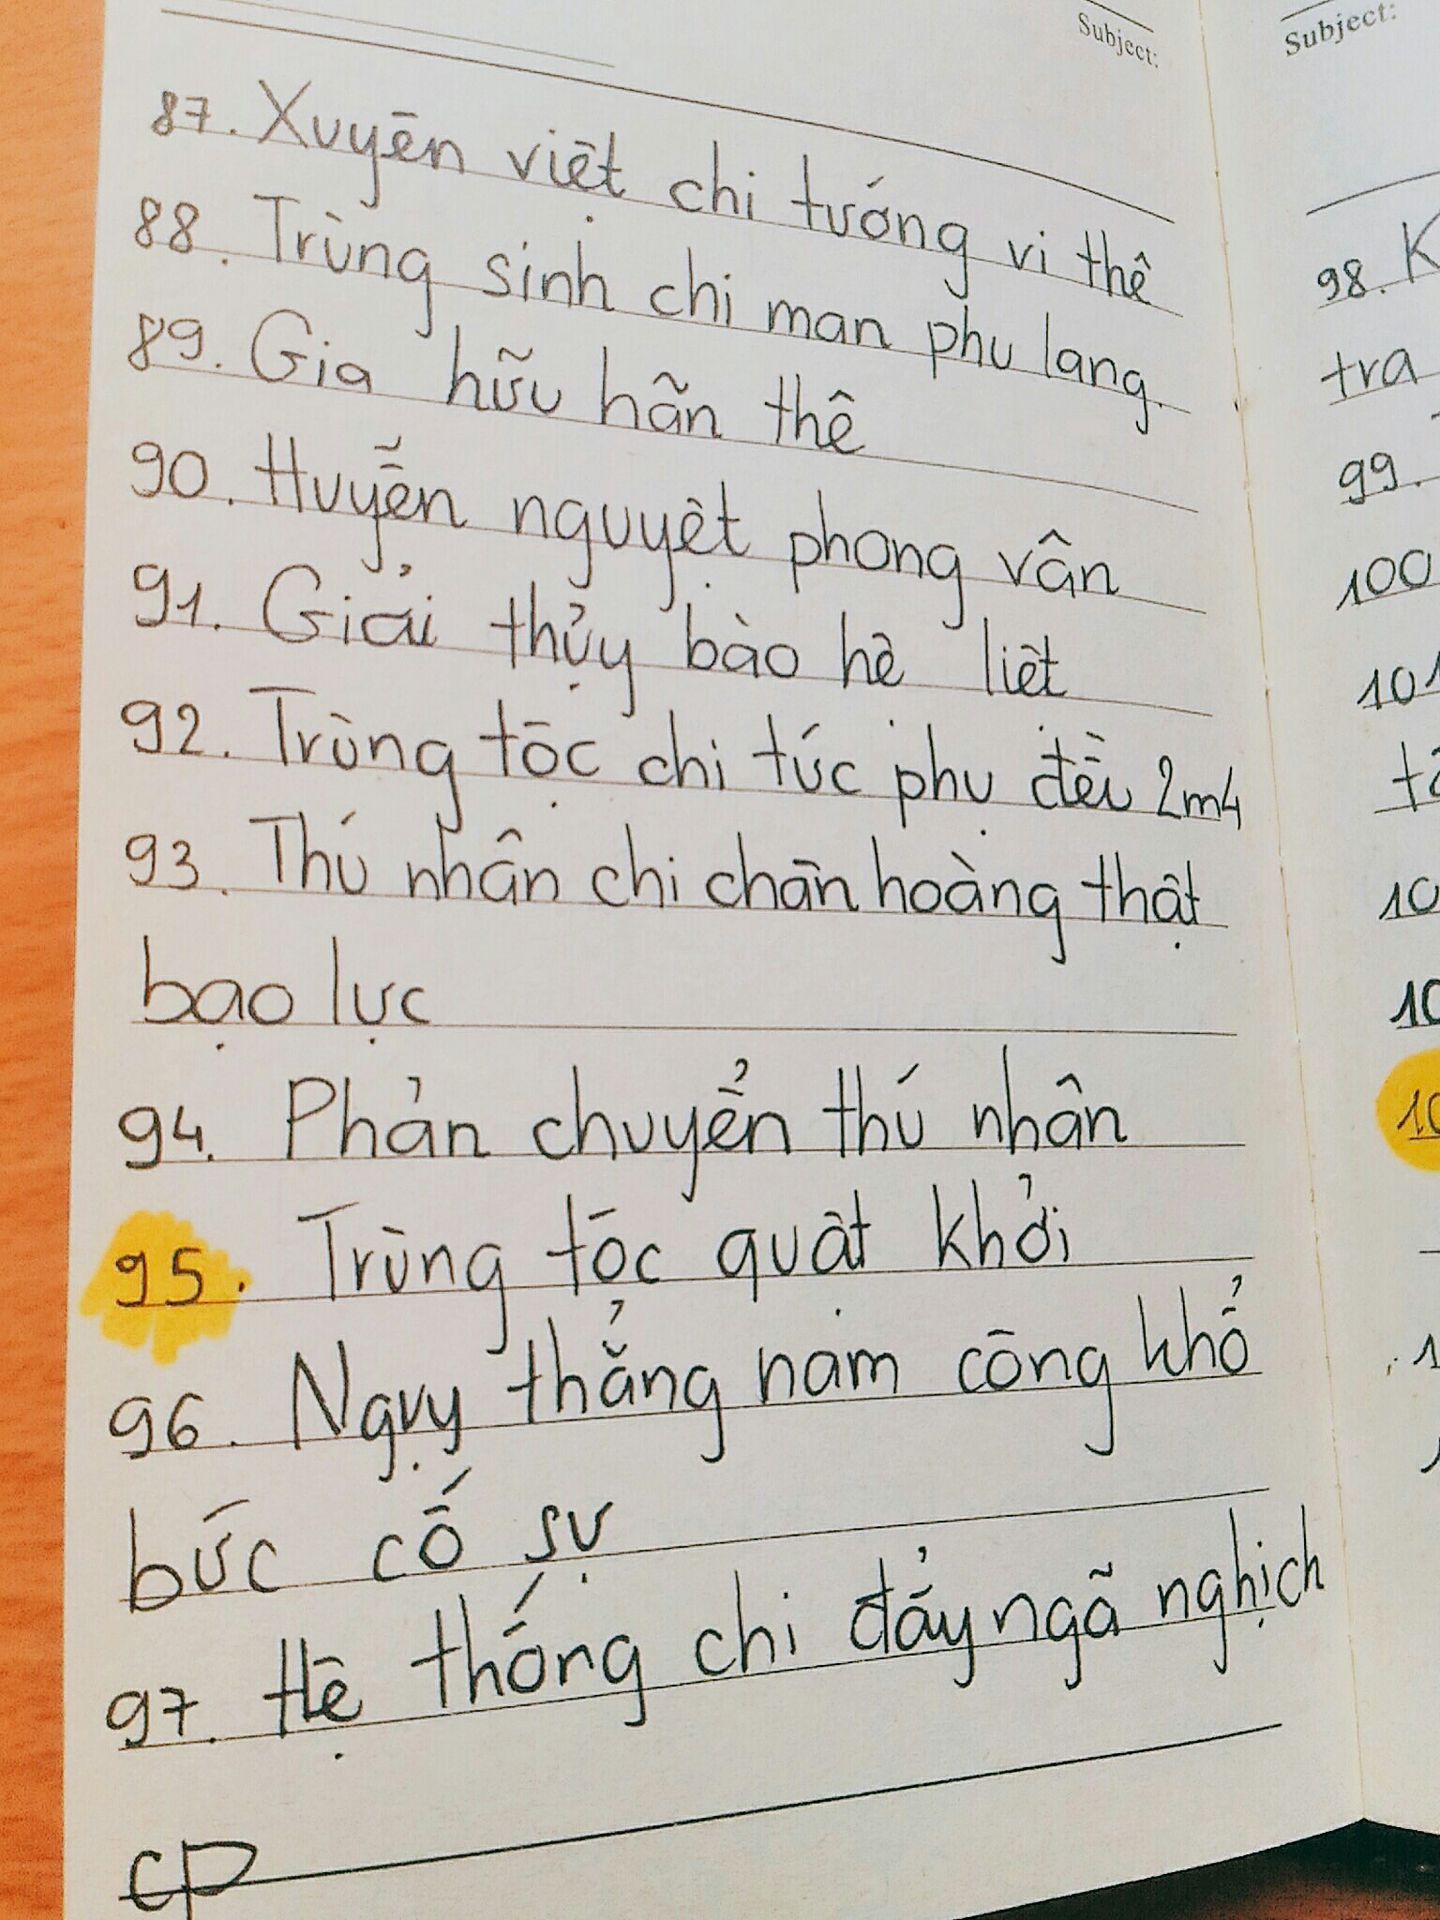 Subject:
87. Xuyên việt chi tướng vi thê
88. Trùng sinh chi man phu lang.
89. Gia hữu hãn thê
90. Huyễn nguyệt phong vân
91. Giải thủy bào hệ liệt
92. Trùng tộc chi tức phụ đều 2m4
93. Thú nhân chi chān hoàng thật
bạo lực
94. Phản chuyển thú nhân
95. Trùng tộc quật khởi
96. Ngụy thẳng nam công khổ
bức cố sự
97. Hệ thống chi đảy ngã nghịch
CP
Subject:
98. K
tra
99.
100
101
10
10
10